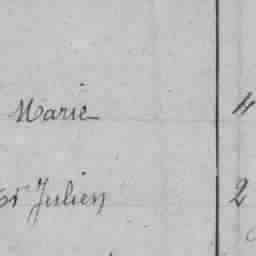 Marie 4
St Julien 2